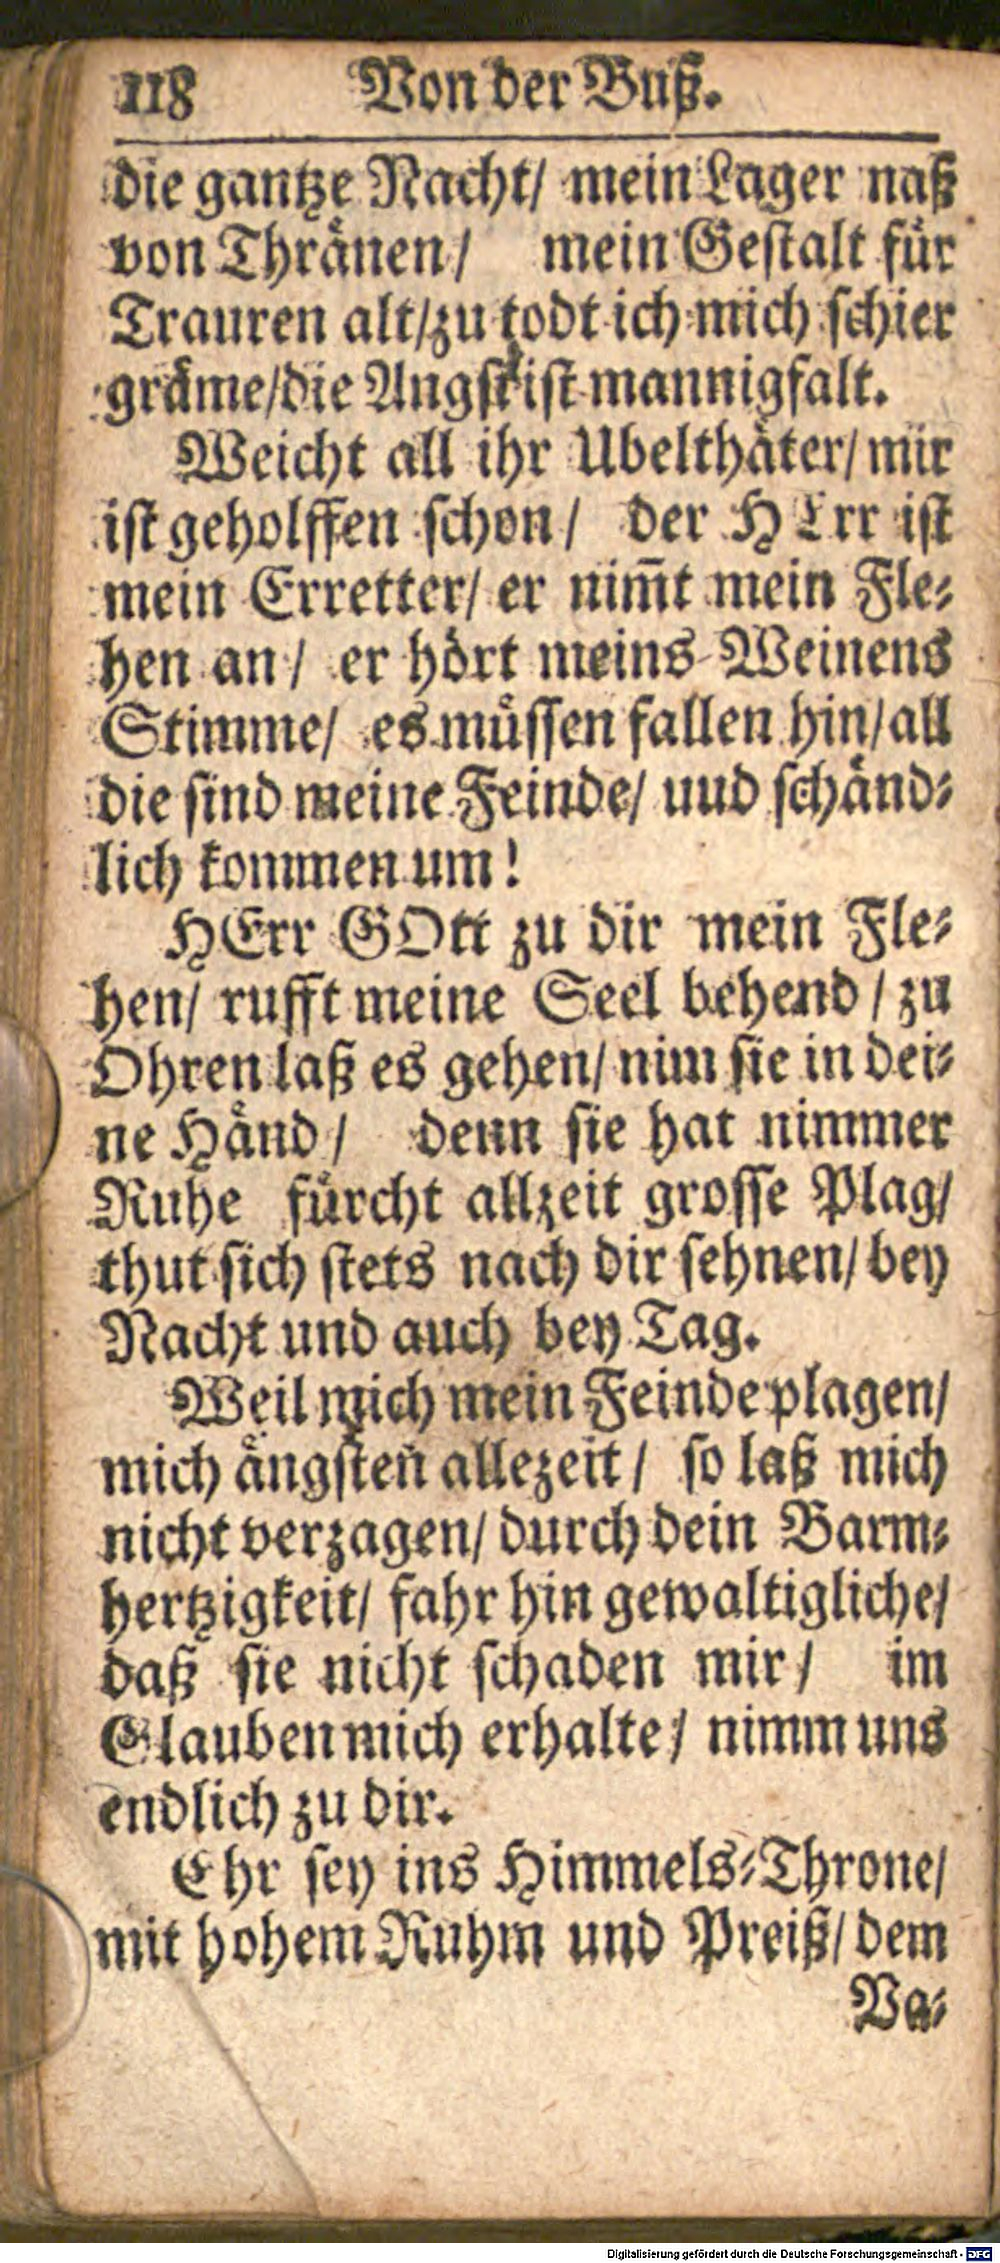 118 Von der Buß.
die gantze Nacht/ mein Lager naß
von Thränen/ mein Gestalt für
Trauren alt/zu todt ich mich schier
gräme/die Angst ist mannigfalt.
Weicht all ihr Ubelthäter/ mir
ist geholffen schon/ der HErr ist
mein Erretter/ er nim̅t mein Fle-
hen an/ er hört meins Weinens
Stimme/ es müssen fallen hin/ all
die sind meine Feinde/ uud schänd-
lich kommen um!
HErr GOtt zu dir mein Fle-
hen/ rufft meine Seel behend/ zu
Ohren laß es gehen/ nim sie in dei-
ne Händ/ denn sie hat nimmer
Ruhe fürcht allzeit grosse Plag/
thut sich stets nach dir sehnen/ bey
Nacht und auch bey Tag.
Weil mich mein Feinde plagen/
mich ängsten allezeit/ so laß mich
nicht verzagen/ durch dein Barm-
hertzigkeit/ fahr hin gewaltigliche/
daß sie nicht schaden mir/ im
Glauben mich erhalte/ nimm uns
endlich zu dir.
Ehr sey ins Himmels-Throne/
mit hohem Ruhm und Preiß/ dem
Va-
Digitalisierung gefördert durch die Deutsche Forschungsgemeinschaft - DFG